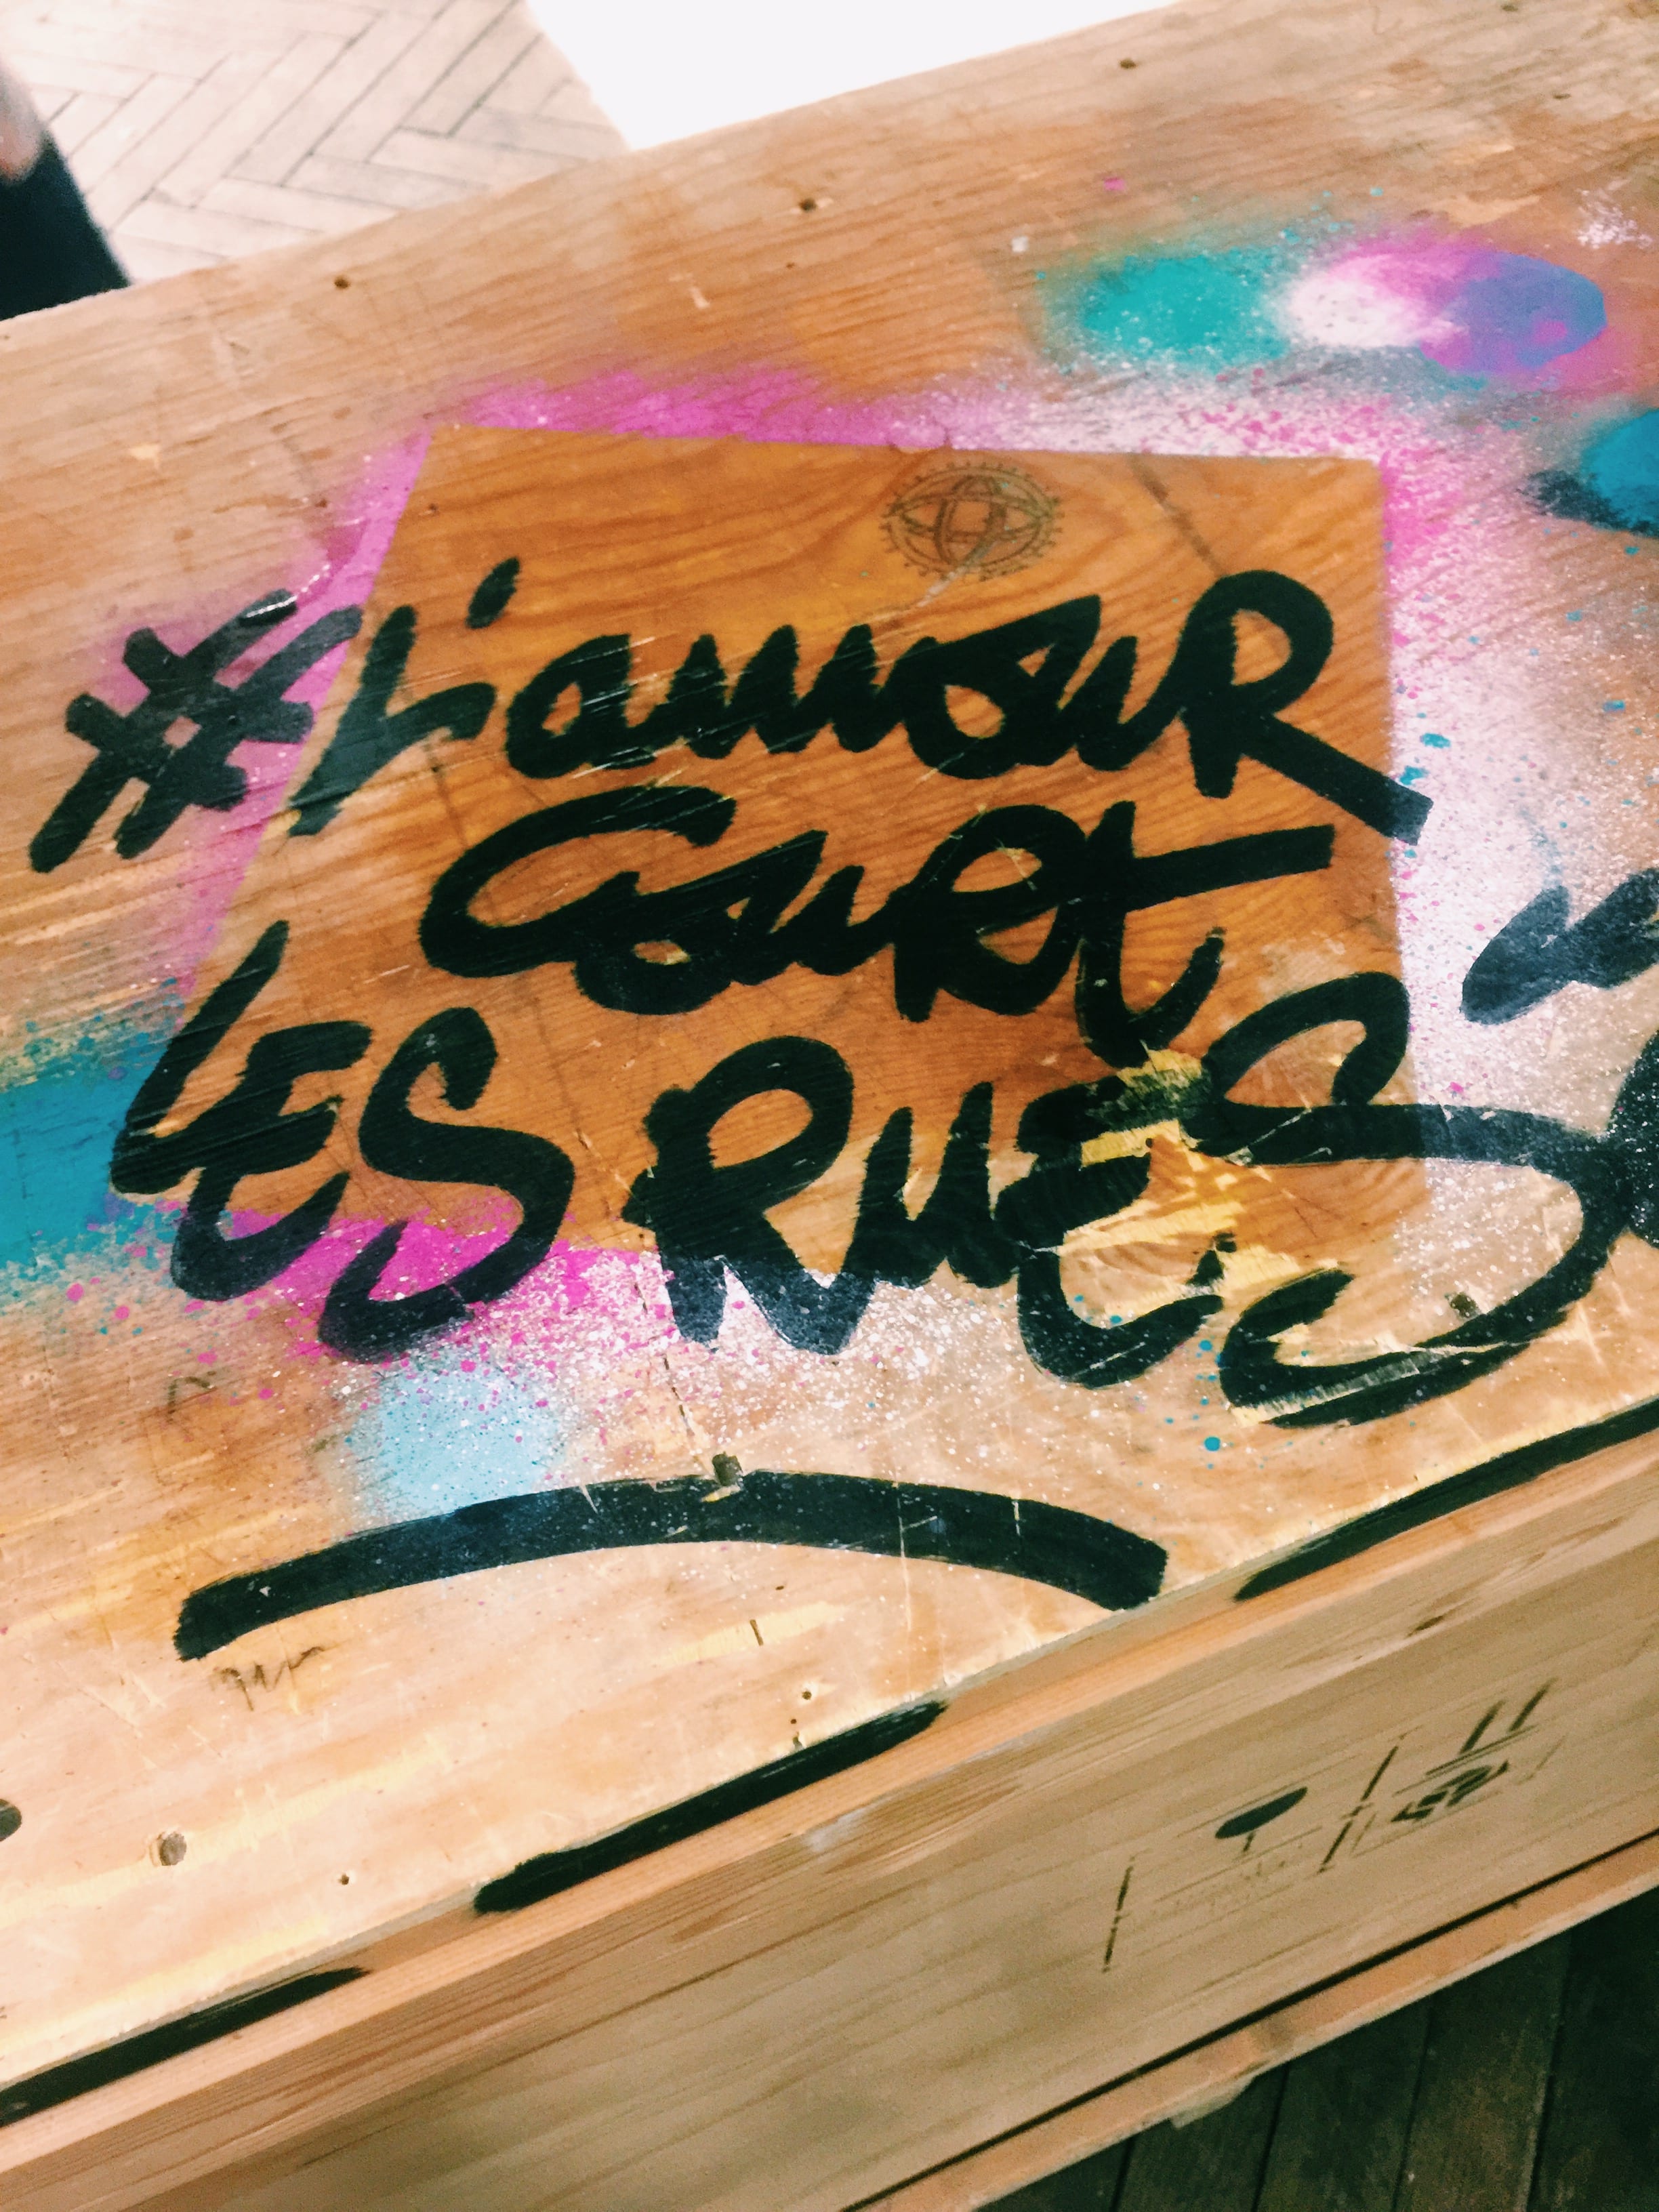 #L'amouR
CouRt
LES RuES